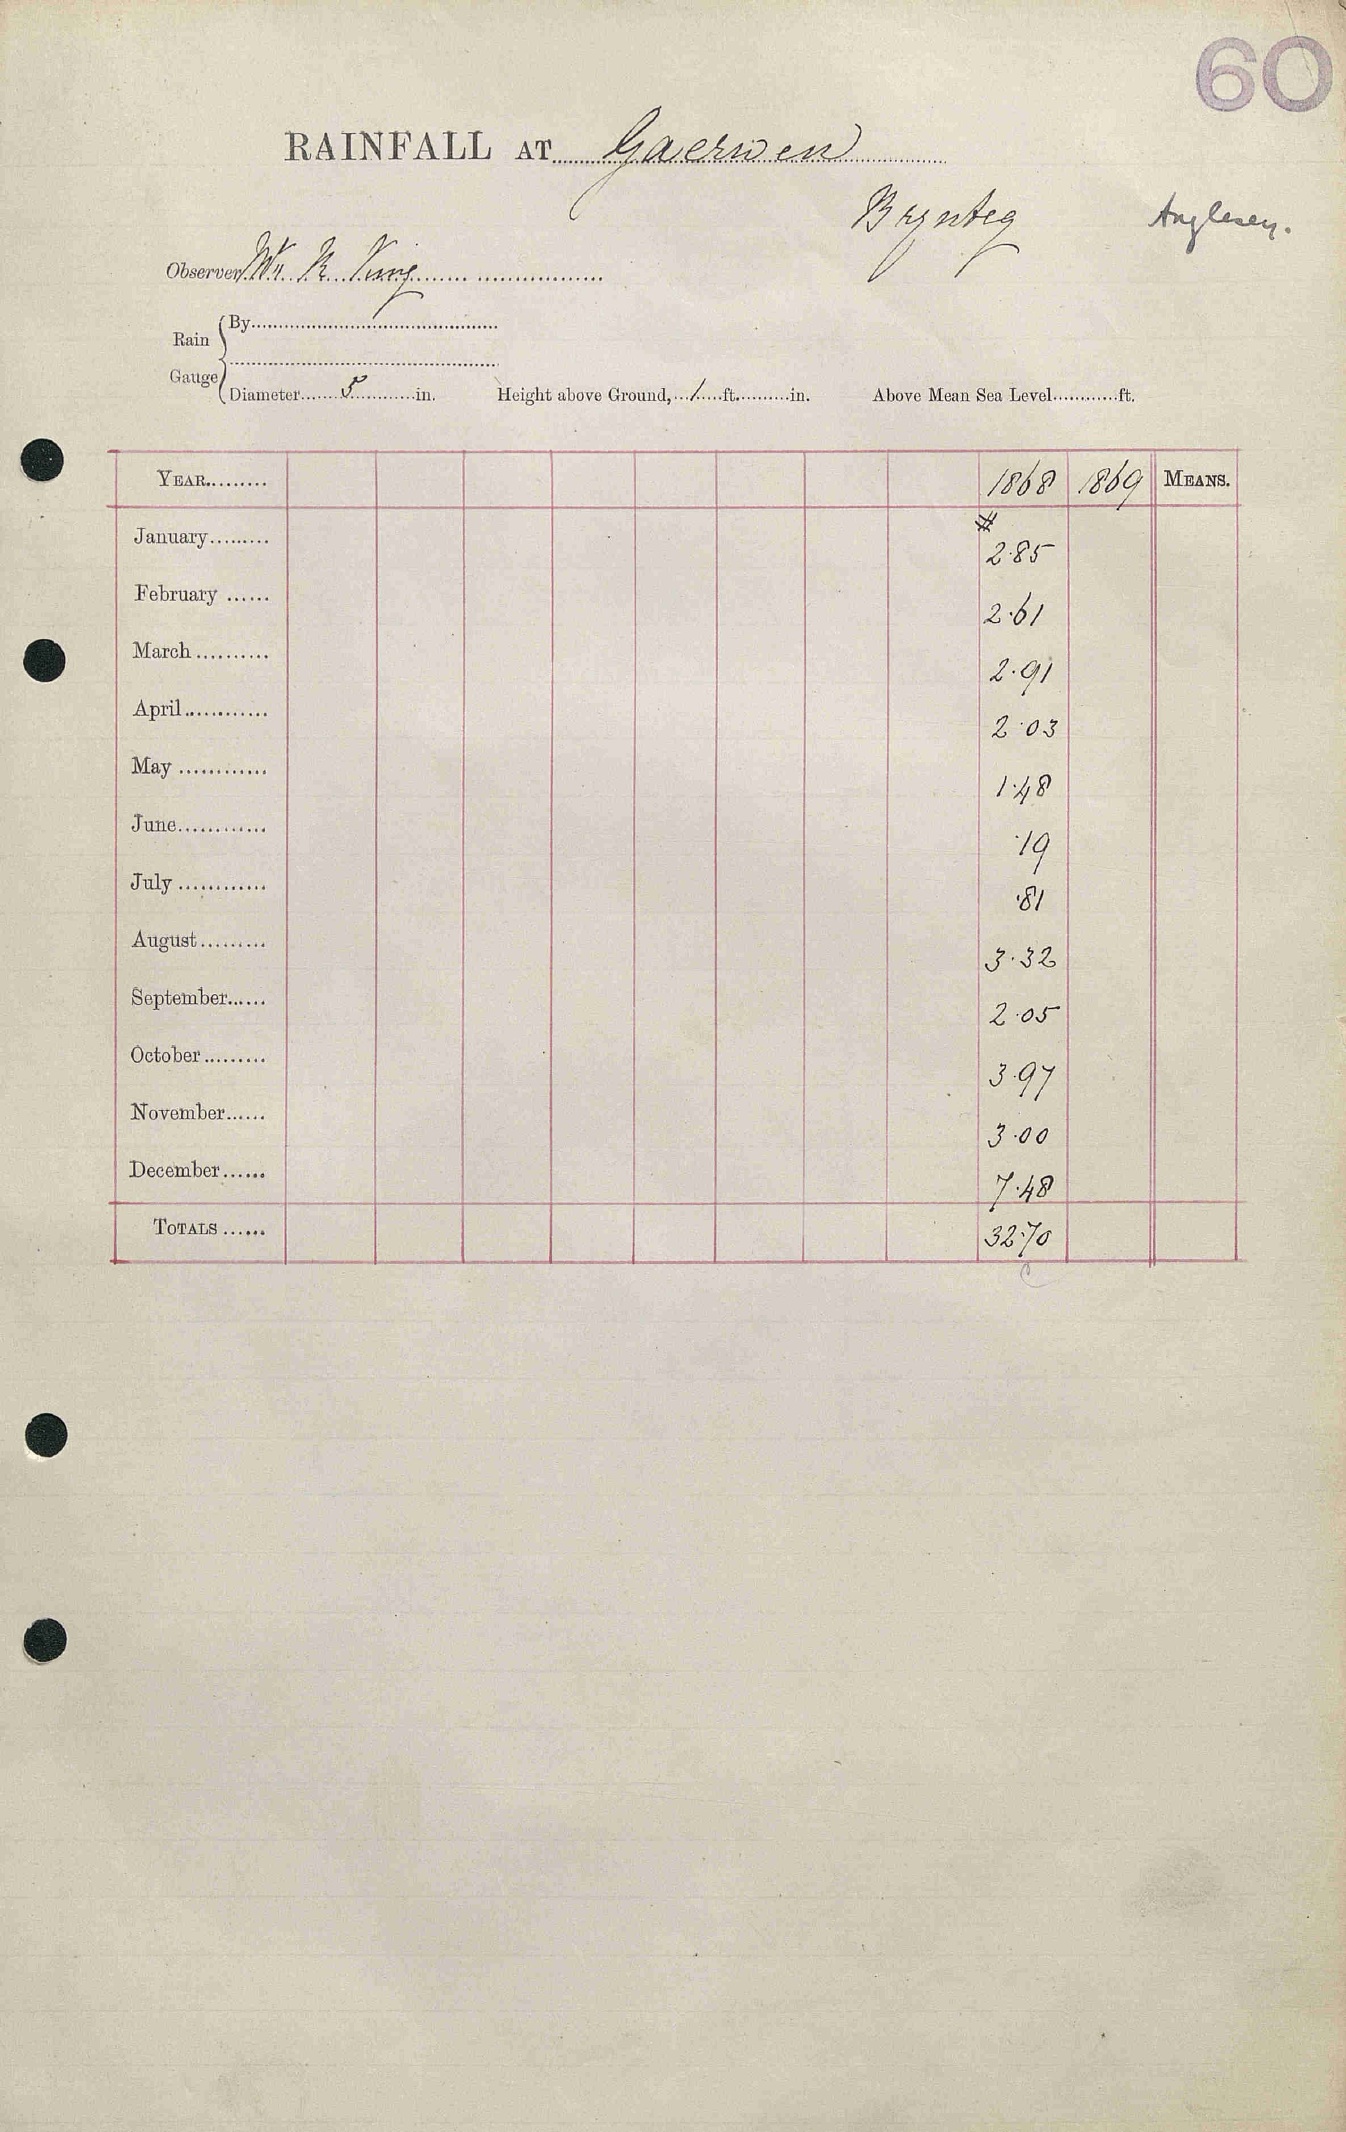 60
RAINFALL AT Gaerwen
Brynteg Anglesey.
Observer R. King
Rain Gauge { By
Diameter 5 in. Height above Ground, 1 ft. in. Above Mean Sea Level ft.
YEAR 1868 1869 MEANS.
January 2.85
February 2.61
March 2.91
April 2.03
May 1.48
June .19
July .81
August 3.32
September 2.05
October 3.97
November 3.00
December 7.48
TOTALS 32.70